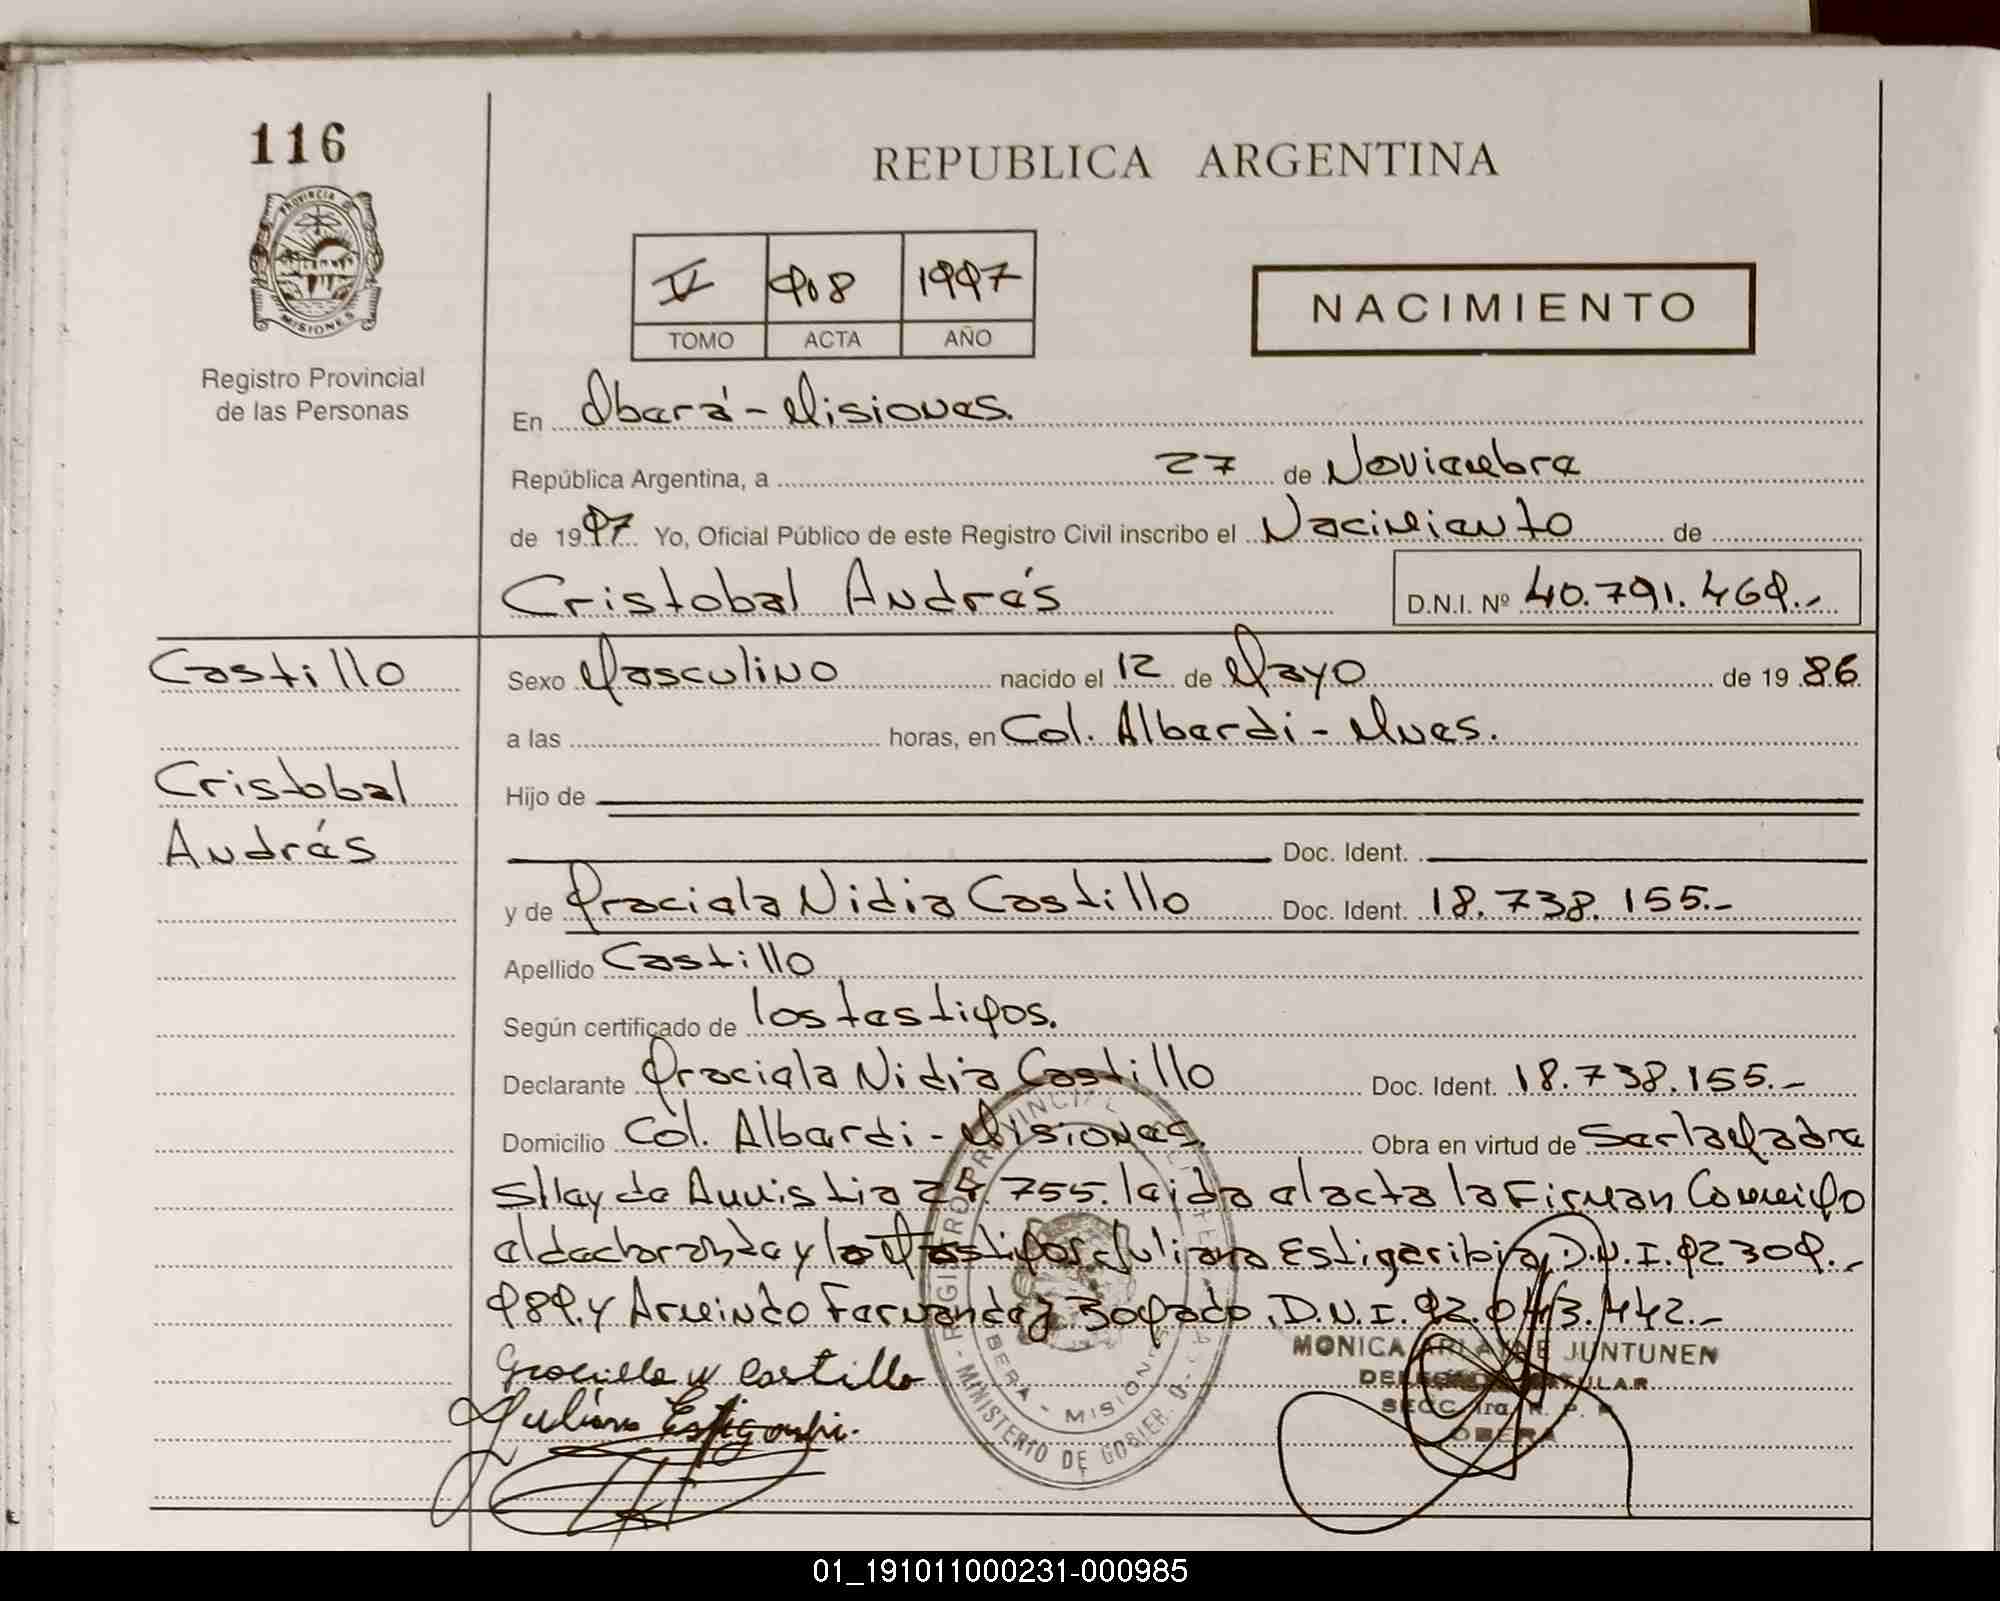 116
PROVINCIA DE
MISIONES
Registro Provincial
de las Personas
REPUBLICA ARGENTINA
V 908 1997
TOMO ACTA AÑO
NACIMIENTO
En Oberá - Misiones.
República Argentina, a 27 de Noviembre
de 1997 Yo, Oficial Público de este Registro Civil inscribo el Nacimiento de
Cristobal Andrés D.N.I. Nº 40.791.469.-
Castillo
Cristobal
Andrés
Sexo Masculino nacido el 12 de Mayo de 1986
a las horas, en Col. Alberdi - Mnes.
Hijo de
Doc. Ident.
y de Graciela Nidia Castillo Doc. Ident. 18.738.155.-
Apellido Castillo
Según certificado de los testigos.
Declarante Graciela Nidia Castillo Doc. Ident. 18.738.155.-
Domicilio Col. Alberdi - Misiones. Obra en virtud de Ser la Madre
s/ley de Amnistia 24.755. leida el acta la Firman Conmigo
el declarante y los Testigos Juliana Estigarribia, D.N.I. 92.309.-
989. y Armindo Fernandez Bogado, D.N.I. 92.043.442.-
Graciela N Castillo
Juliana Estigarribi.
REGISTRO PROVINCIAL DE LAS
MINISTERIO DE GOBIER.
OBERA - MISIONES
MONICA ARLAYNE JUNTUNEN
DELEGADO TITULAR
SECC. 1ra. R. P. P.
OBERA
01_191011000231-000985